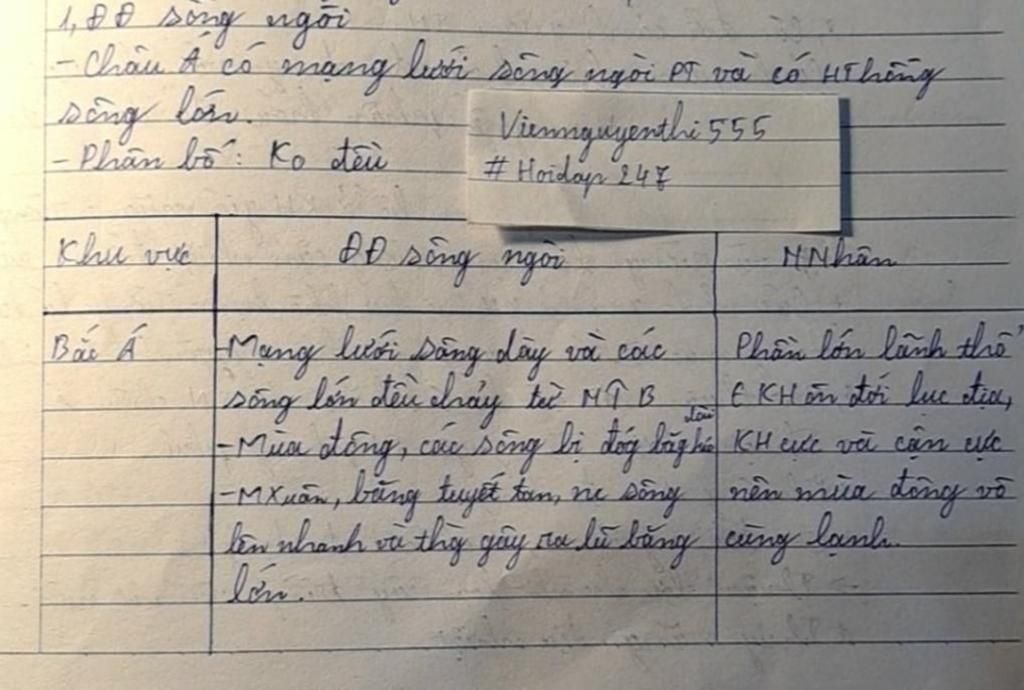 1, ĐĐ sông ngòi
- Châu Á có mạng lưới sông ngòi PT và có HThống
sông lớn.
- Phân bố: Ko đều
Viennguyenthi555
#Hoidap247
Khu vực
ĐĐ sông ngòi
NNhân
Bắc Á
-Mạng lưới sông dày và các
sông lớn đều chảy từ N↑B
-Mùa đông, các sông bị đóg băg kéo dài
-MXuân, băng tuyết tan, nc sông
lên nhanh và thg gây ra lũ băng
lớn.
Phần lớn lãnh thổ
E KH ôn đới lục địa,
KH cực và cận cực
nên mùa đông vô
cùng lạnh.